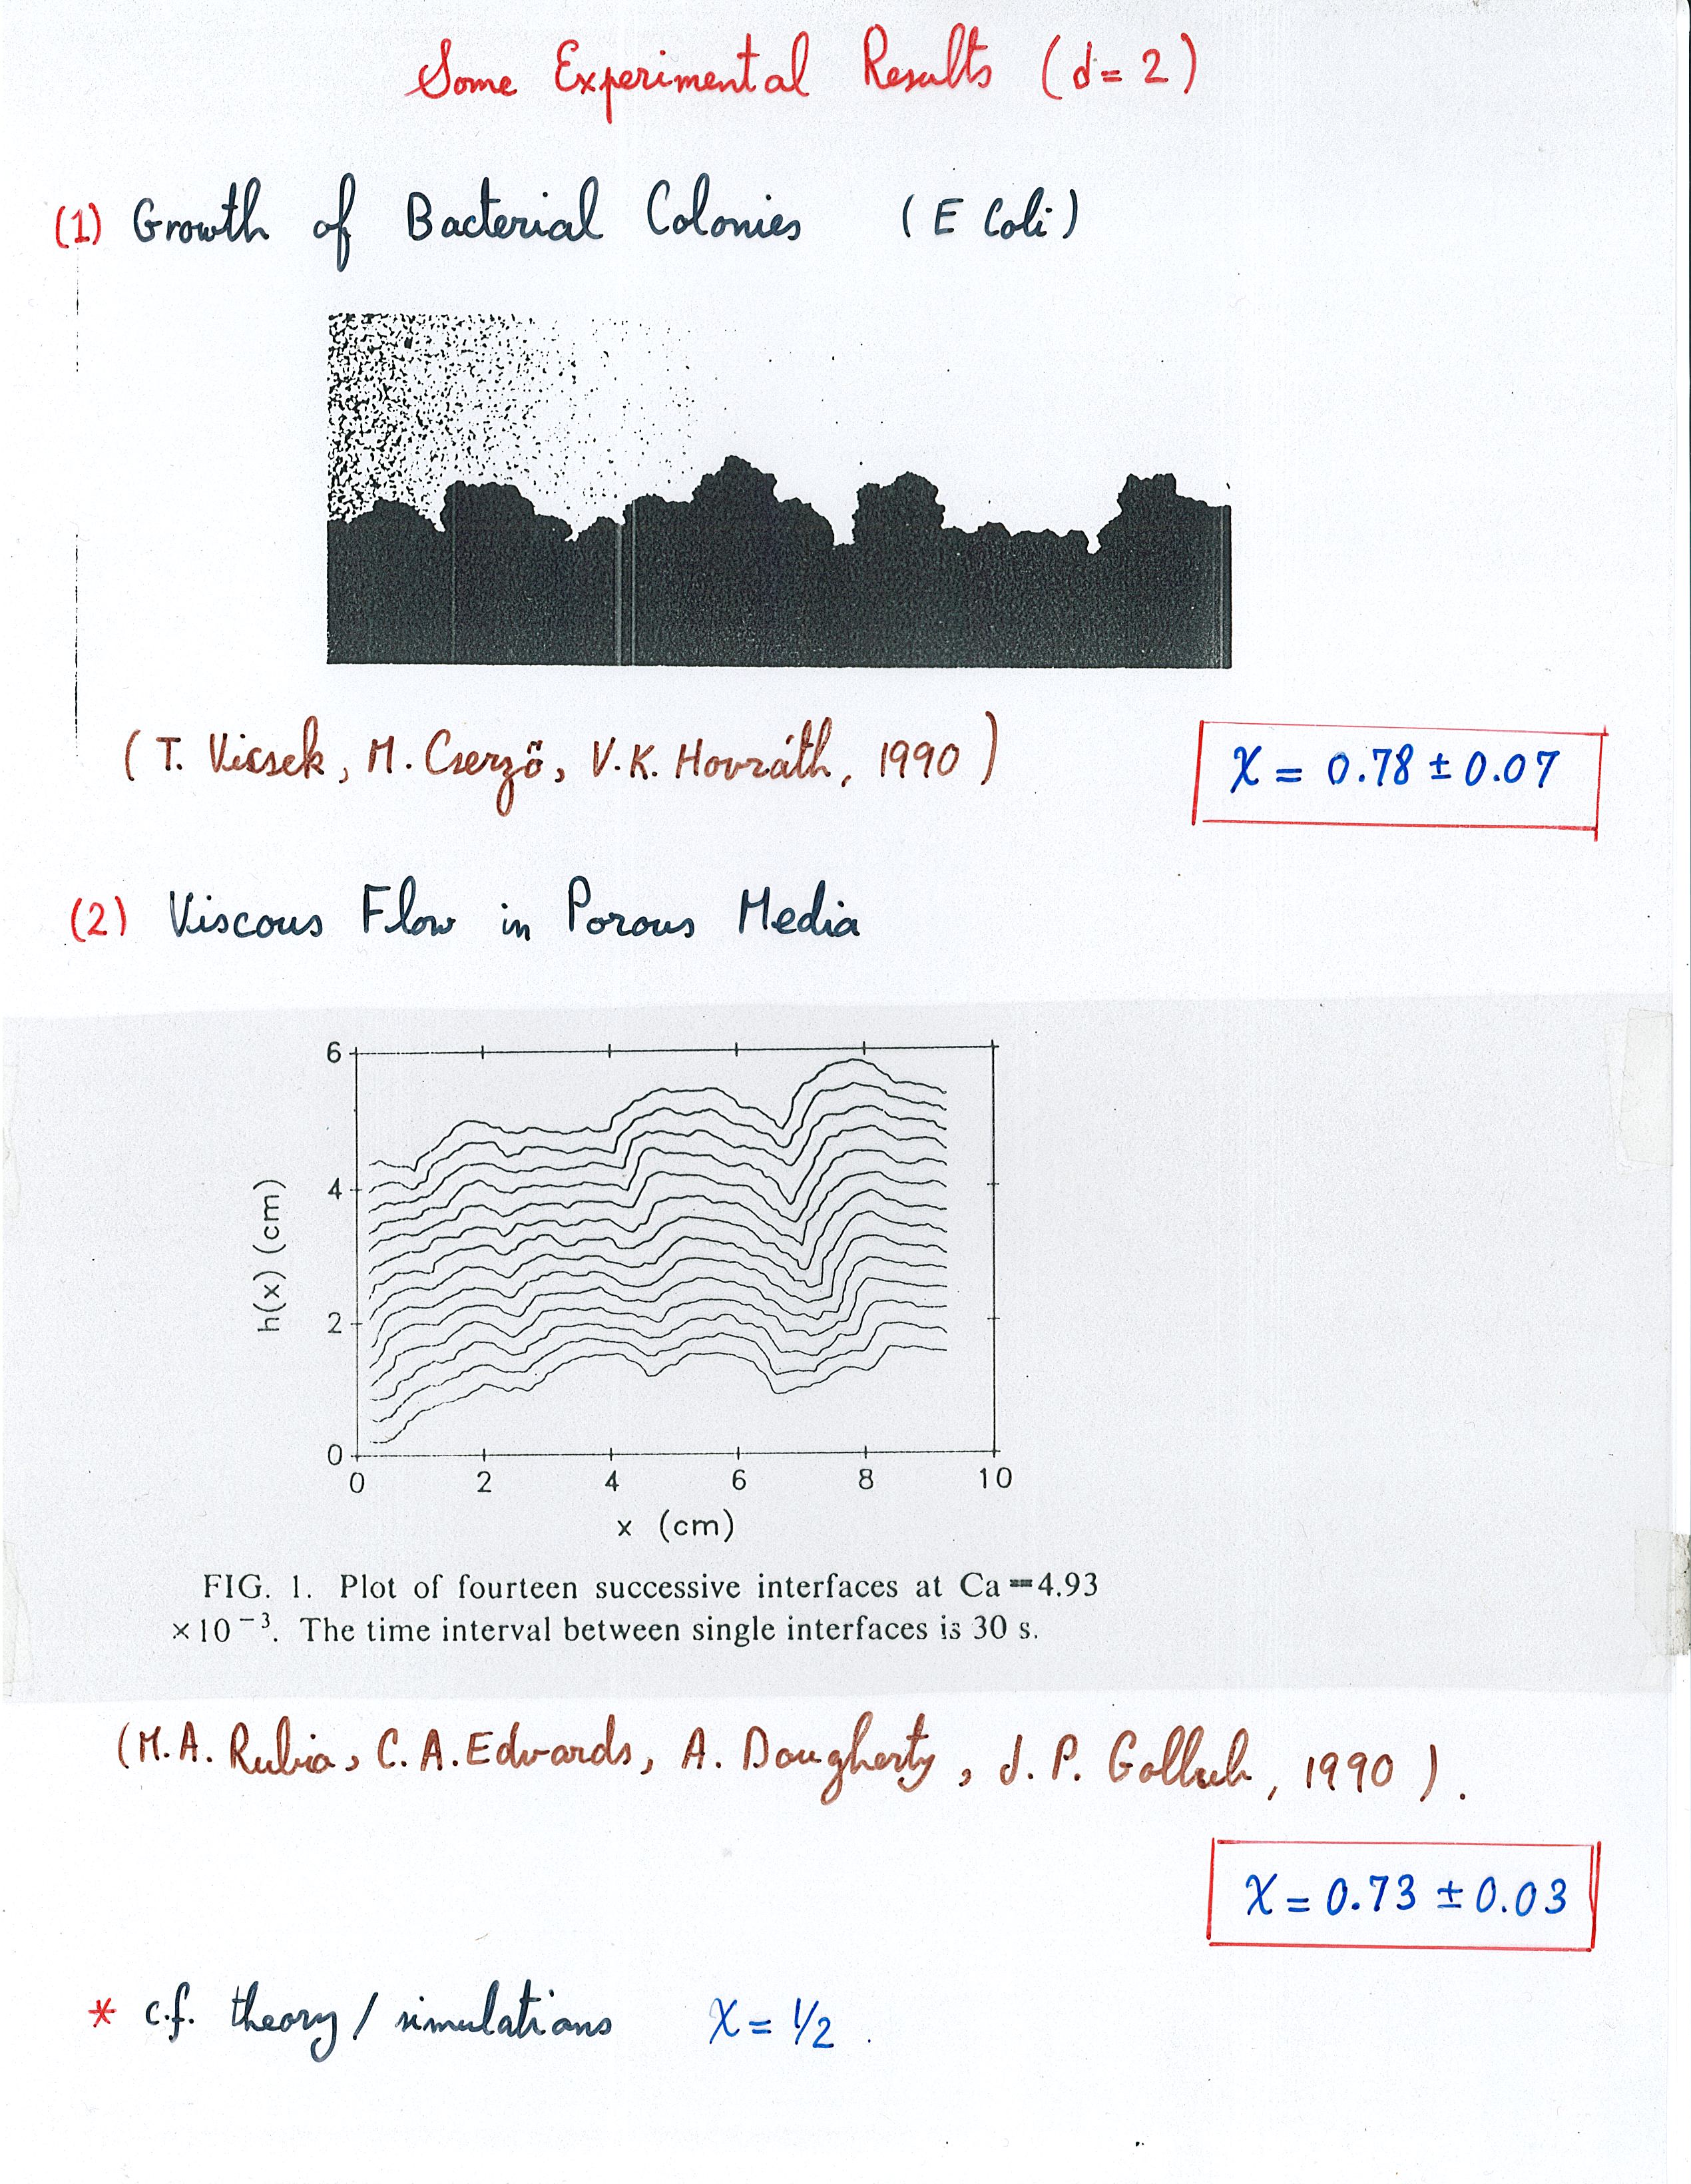 Some Experimental Results (d=2)
(1) Growth of Bacterial Colonies (E Coli)
(T. Vicsek, M. Cserzö, V.K. Horváth, 1990)
χ = 0.78 ± 0.07
(2) Viscous Flow in Porous Media
6
4
2
0
h(x) (cm)
0 2 4 6 8 10
x (cm)
FIG. 1. Plot of fourteen successive interfaces at Ca = 4.93
×10⁻³. The time interval between single interfaces is 30 s.
(M.A. Rubia, C.A. Edwards, A. Dougherty, J. P. Gollub, 1990).
χ = 0.73 ± 0.03
* c.f. theory / simulations χ = 1/2 .